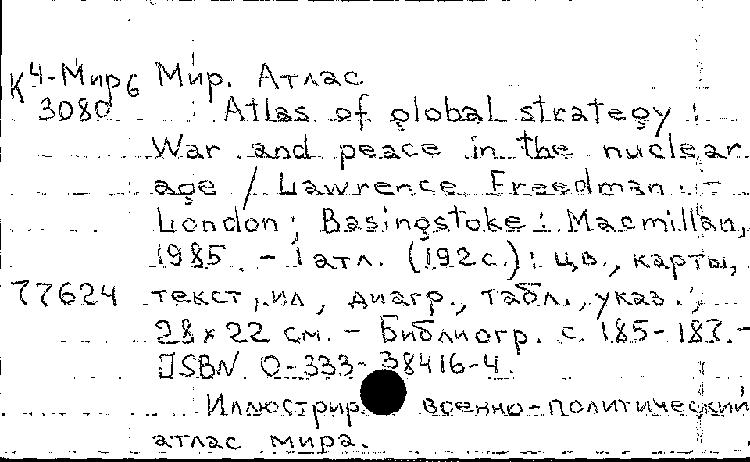 К4-Мир6 Мир. Атлас
3080 Atlas of global strategy :
War and peace in the nuclear
age / Lawrence Freedman. -
London ; Basingstoke : Macmillan,
1985. - 1 атл. (192с.) : цв., карты,
77624 текст, ил, диагр., табл., указ.;
28x22 см. - Библиогр. с. 185-187. -
ISBN 0-333-38416-4.
Иллюстрир. военно-политический
атлас мира.